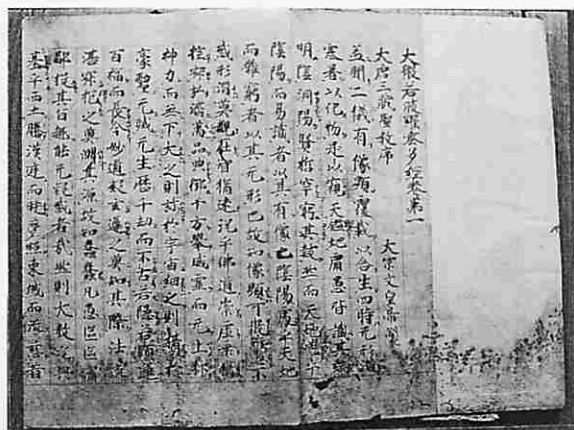 大般若波羅蜜多經卷第一
大唐三藏聖教序 太宗文皇帝製
蓋聞二儀有像顯覆載以含生四時无形潛
寒暑以化物是以窺天鑑地庸愚皆識其端
明陰洞陽賢哲罕窮其數然而天地苞乎
陰陽而易識者以其有像也陰陽處乎天地
而難窮者以其无形也故知像顯可徵雖愚不
惑形潛莫覩在智猶迷況乎佛道崇虛乘幽
控寂弘濟萬品典御十方舉威靈而无上抑
神力而無下大之則彌於宇宙細之則攝於
豪釐无滅无生歷千劫而不古若隱若顯運
百福而長今妙道凝玄遵之莫知其際法流
湛寂挹之莫測其源故知蠢蠢凡愚區區庸
鄙投其旨趣能无疑惑者哉然則大教之興
基乎西土騰漢庭而皎夢照東域而流慈昔